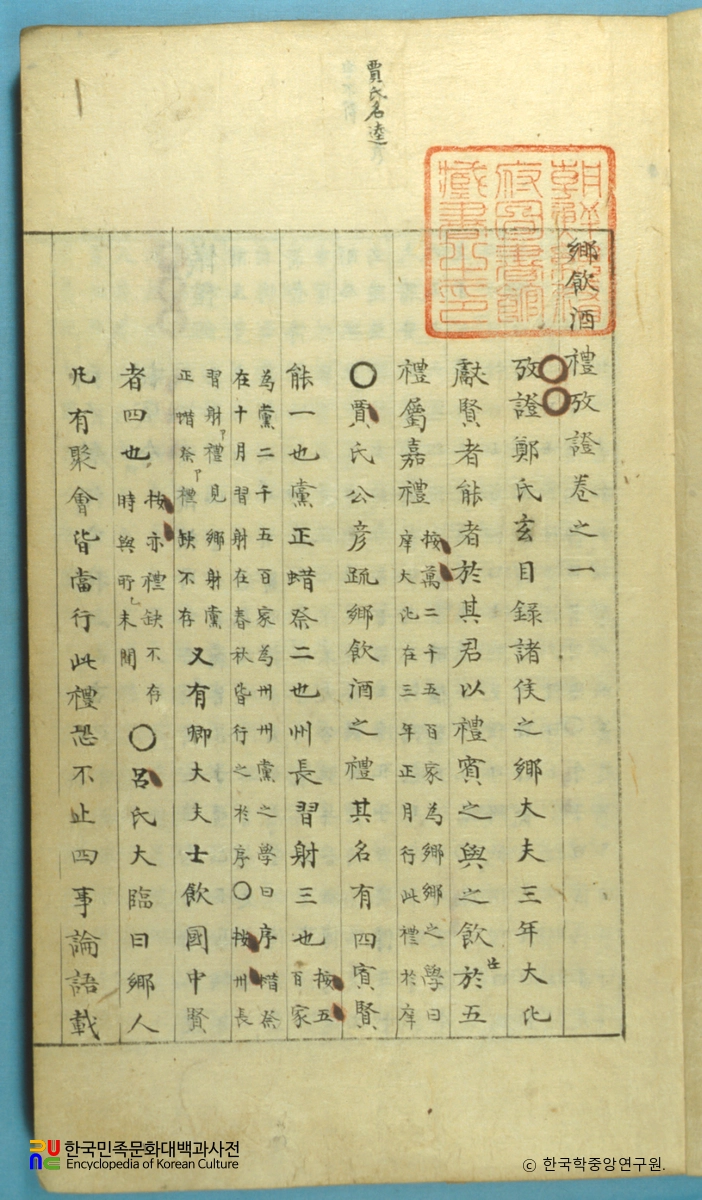 賈氏名逵
朝鮮總督
府圖書館
藏書之印
鄉飲酒禮攷證卷之一
攷證鄭氏玄目錄諸侯之鄉大夫三年大比
獻賢者能者於其君以禮賓之與之飲於五
禮屬嘉禮 按萬二千五百家為鄉鄉之學曰
庠大比在三年正月行此禮於庠
〇賈氏公彦疏鄉飲酒之禮其名有四賓賢
能一也黨正蜡祭二也州長習射三也 按五
百家
為黨二千五百家為州州黨之學曰序蜡祭
在十月習射在春秋皆行之於序〇按州長
習射禮見鄉射黨
正蜡祭禮缺不存 又有卿大夫士飲國中賢
者四也 按亦禮缺不存
時與所未聞 〇呂氏大臨曰鄉人
凡有聚會皆當行此禮恐不止四事論語載
한국민족문화대백과사전
Encyclopedia of Korean Culture
© 한국학중앙연구원.